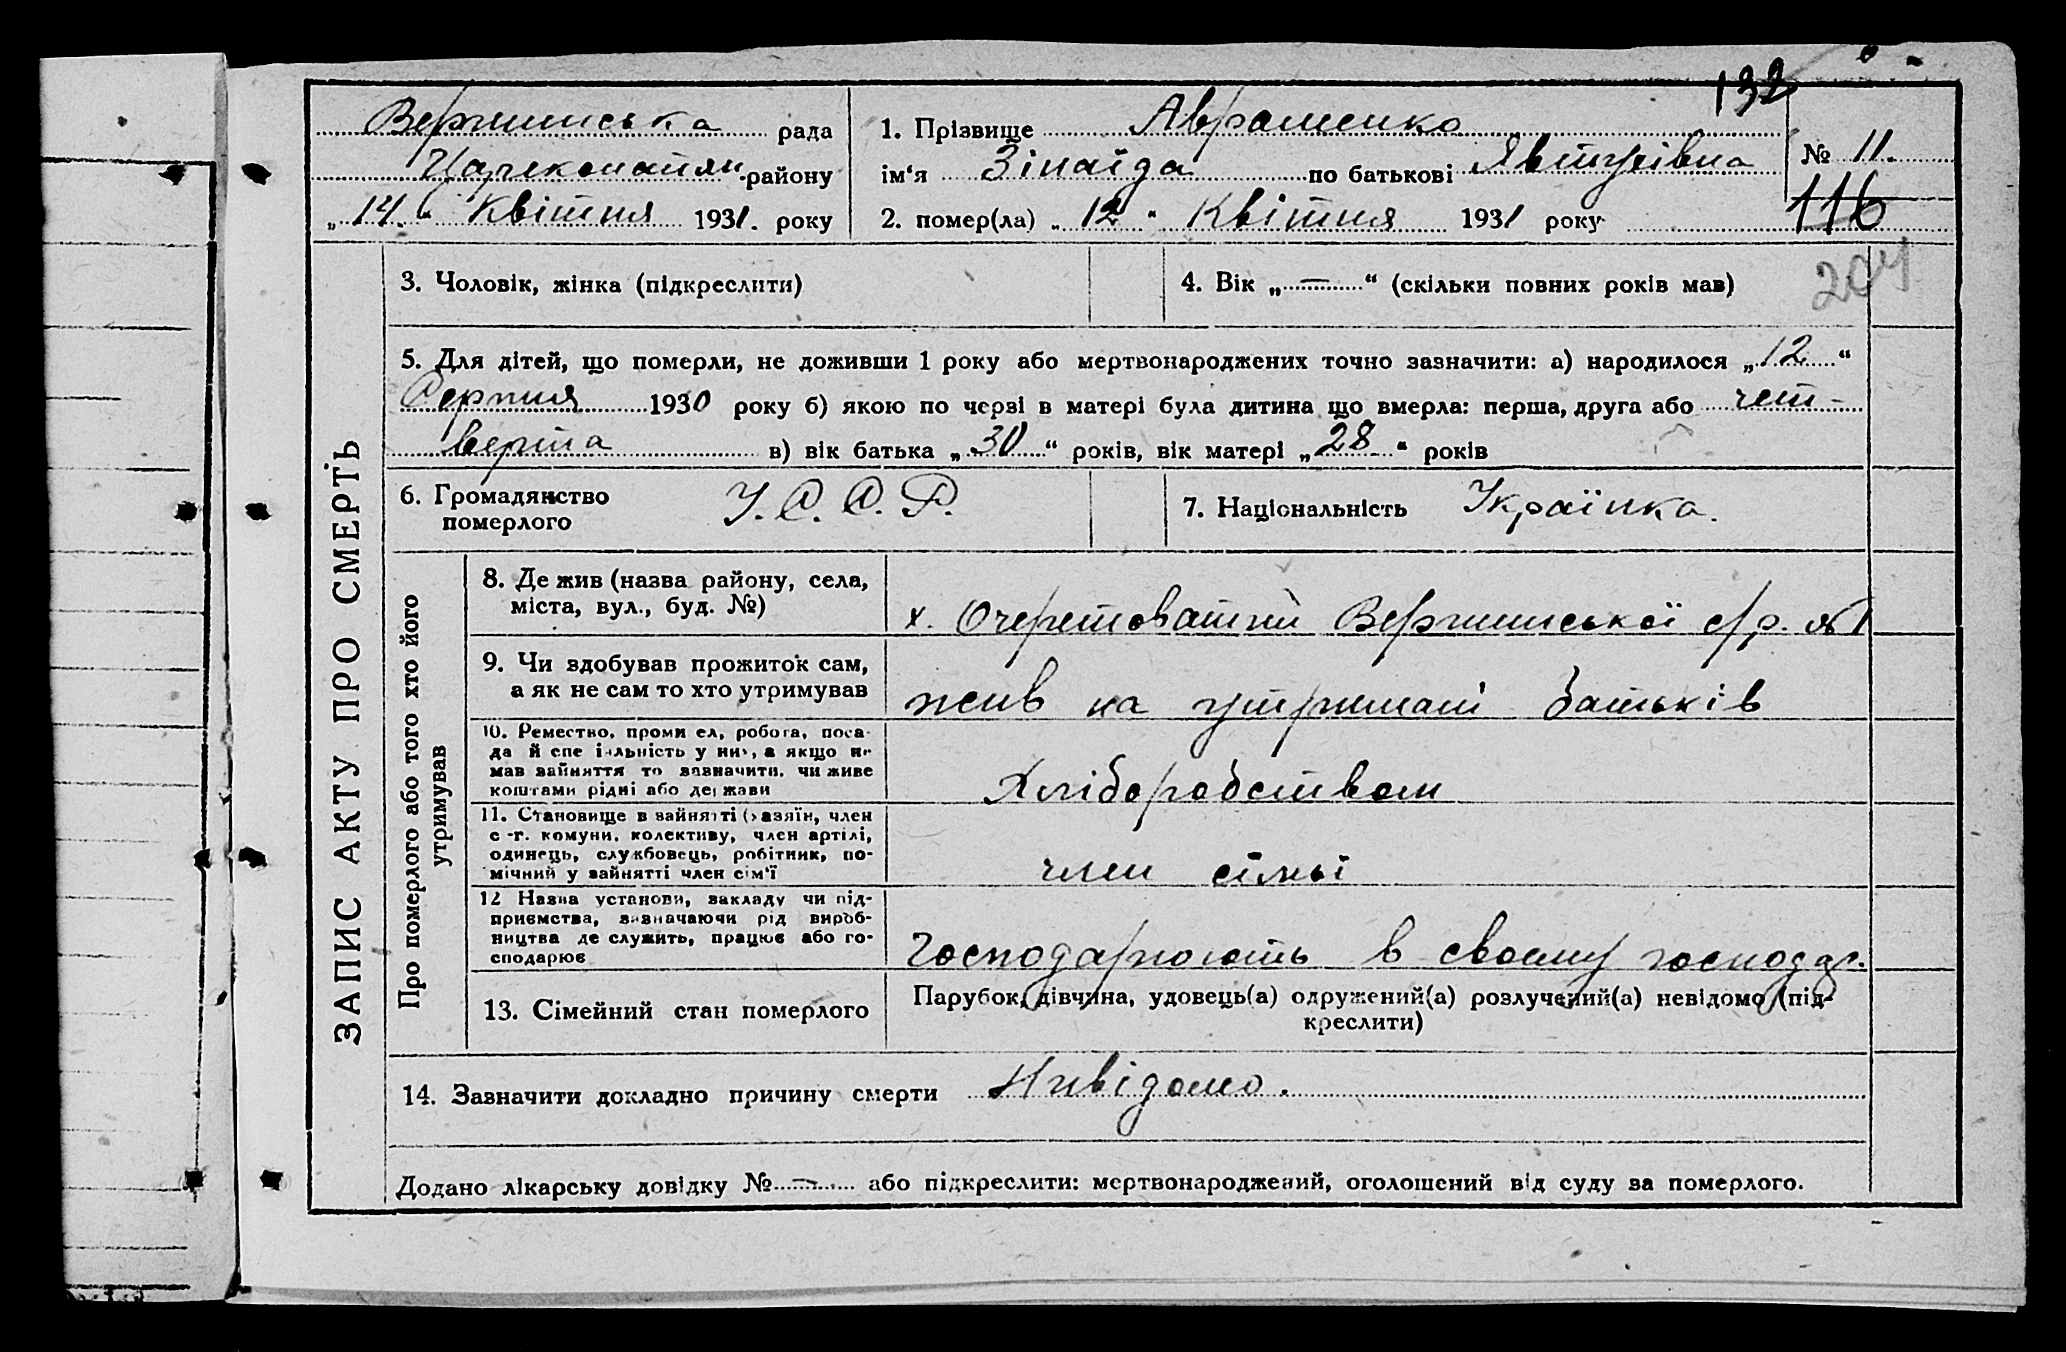 132
Вершинська рада
Царекопатян. району
„ 14 “ Квітня 1931. року
1. Прізвище Авраменко
ім'я Зінаїда по батькові Явтухівна
2. помер(ла) „ 12 “ Квітня 1931 року
№ 11.
116
204
ЗАПИС АКТУ ПРО СМЕРТЬ
3. Чоловік, жінка (підкреслити)
4. Вік „ — “ (скільки повних років мав)
5. Для дітей, що померли, не доживши 1 року або мертвонароджених точно зазначити: а) народилося „ 12 “
Серпня 1930 року б) якою по черзі в матері була дитина що вмерла: перша, друга або чет-
верта в) вік батька „ 30 “ років, вік матері „ 28 “ років
6. Громадянство
померлого
У. С. С. Р.
7. Національність Українка.
Про померлого або того хто його
утримував
8. Де жив (назва району, села,
міста, вул., буд. №)
х. Очеретоватий Вершинської с/р. №1
9. Чи здобував прожиток сам,
а як не сам то хто утримував
жив на утримані батьків
10. Ремество, проми ел, робота, поса-
да й спе іяльність у ни, а якщо не
мав зайняття то зазначити, чи живе
коштами рідні або держави
Хліборобством
11. Становище в зайнятті (хазяїн, член
с-г. комуни, колективу, член артілі,
одинець, службовець, робітник, по-
мічний у зайнятті член сім'ї
член сімьї
12 Назва установи, закладу чи під-
приємства, зазначаючи рід вироб-
ництва де служить, працює або го-
сподарює
Господарюють в своєму господар.
13. Сімейний стан померлого
Парубок, дівчина, удовець(а) одружений(а) розлучений(а) невідомо (під-
креслити)
14. Зазначити докладно причину смерти Нивідомо.
Додано лікарську довідку № — або підкреслити: мертвонароджений, оголошений від суду за померлого.